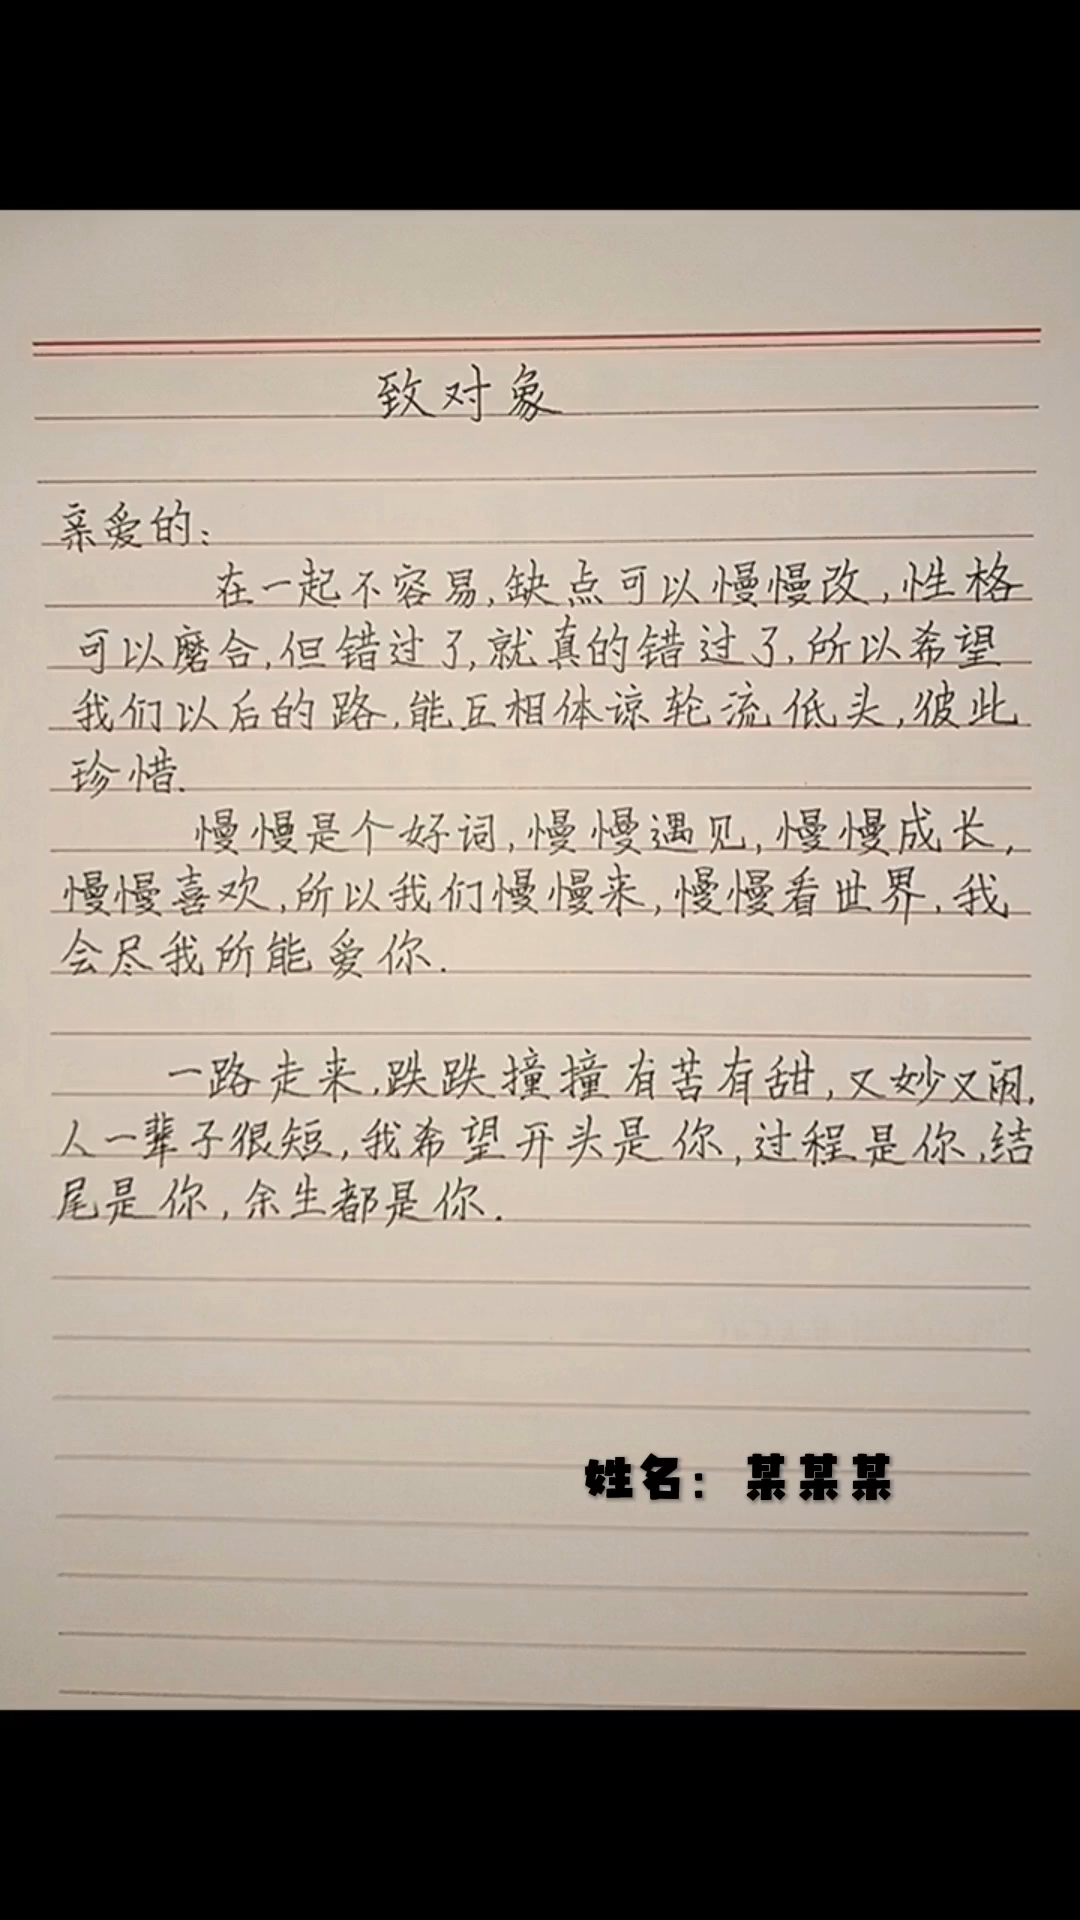 致对象
亲爱的:
在一起不容易,缺点可以慢慢改,性格
可以磨合,但错过了,就真的错过了.所以希望
我们以后的路,能互相体谅轮流低头,彼此
珍惜.
慢慢是个好词,慢慢遇见,慢慢成长,
慢慢喜欢,所以我们慢慢来,慢慢看世界.我
会尽我所能爱你.
一路走来,跌跌撞撞有苦有甜,又妙又闹.
人一辈子很短,我希望开头是你,过程是你,结
尾是你,余生都是你.
姓名: 某某某